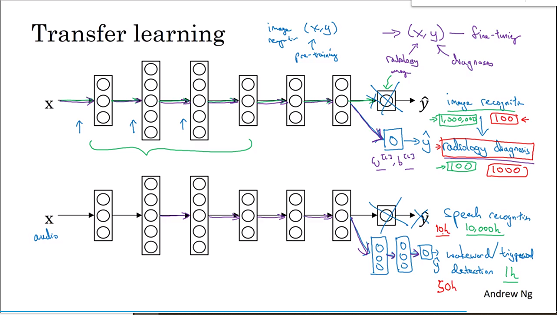 Transfer learning
image (x, y)
pre-training
→ (x, y) — fine-tuning
radiology
image
diagnoses
x
ŷ
ŷ
image recognition
→ 1,000,000 100 ←
→ radiology diagnosis
→ 100 1000 ←
x
audio
ŷ
speech recognition
10h 10,000h
wakeword/triggerword
detection 1h
ŷ
50h
Andrew Ng